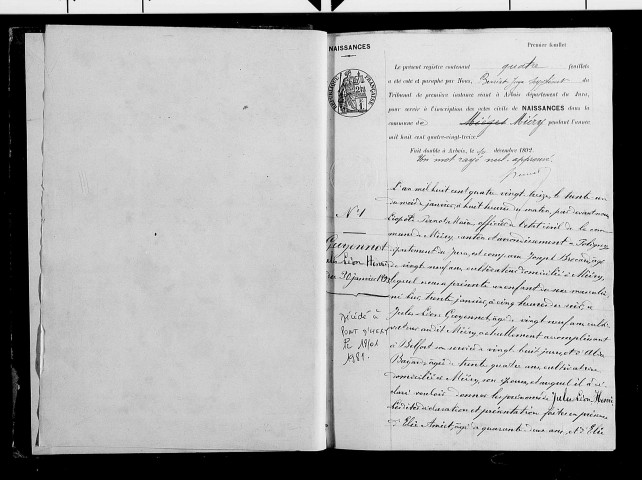 NAISSANCES
Premier feuillet
Le présent registre contenant quatre feuillets,
a été coté et paraphé par Nous, Juge Suppléant du
Tribunal de première instance séant à Arbois département du Jura,
pour servir à l'inscription des actes civils de NAISSANCES dans la
commune de Mièges Miéry pendant l'année
mil huit cent quatre-vingt-treize.
Fait double à Arbois, le décembre 1892
Un mot rayé nul approuvé.
RÉPUBLIQUE FRANÇAISE
N° 1
Guyennot
Jules Léon Henri
du 30 janvier 1893
Décédé à
PONT D'HERY
Le
1981.
L'an mil huit cent quatre vingt treize, le trente un
du mois de janvier, à huit heures du matin, par devant nous
officier de l'état civil de la com
mune de Miéry, canton et arrondissement de Poligny
département du Jura, est comparu Joseph âgé
de vingt neuf ans, cultivateur domicilié à Miéry,
lequel nous a présenté un enfant du sexe masculin
né hier, trente janvier, à cinq heures du soir, de
Jules Léon Guyennot, âgé de vingt neuf ans culti
vateur audit Miéry, actuellement accomplissant
à Belfort son service de vingt huit jours, et de
âgée de trente quatre ans, cultivatrice
domiciliée à Miéry, son épouse, et auquel il a dé
claré vouloir donner les prénoms de Jules Léon Henri
Lesdites déclaration et présentation faites en présence
d'Elie Amiet, âgé de quarante ans, et d'Elie